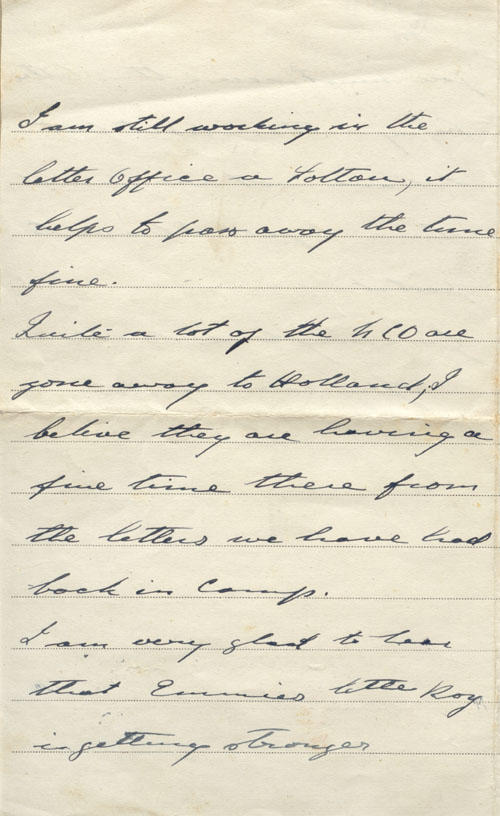 I am still working in the
letter Office a Tottau, it
helps to pass away the time
fine.
Quite a lot of the NCO are
gone away to Holland, I
belive they are having a
fine time there from
the letters we have had
back in Camp.
I am very glad to hear
that Emmies little Roy
is getting stronger